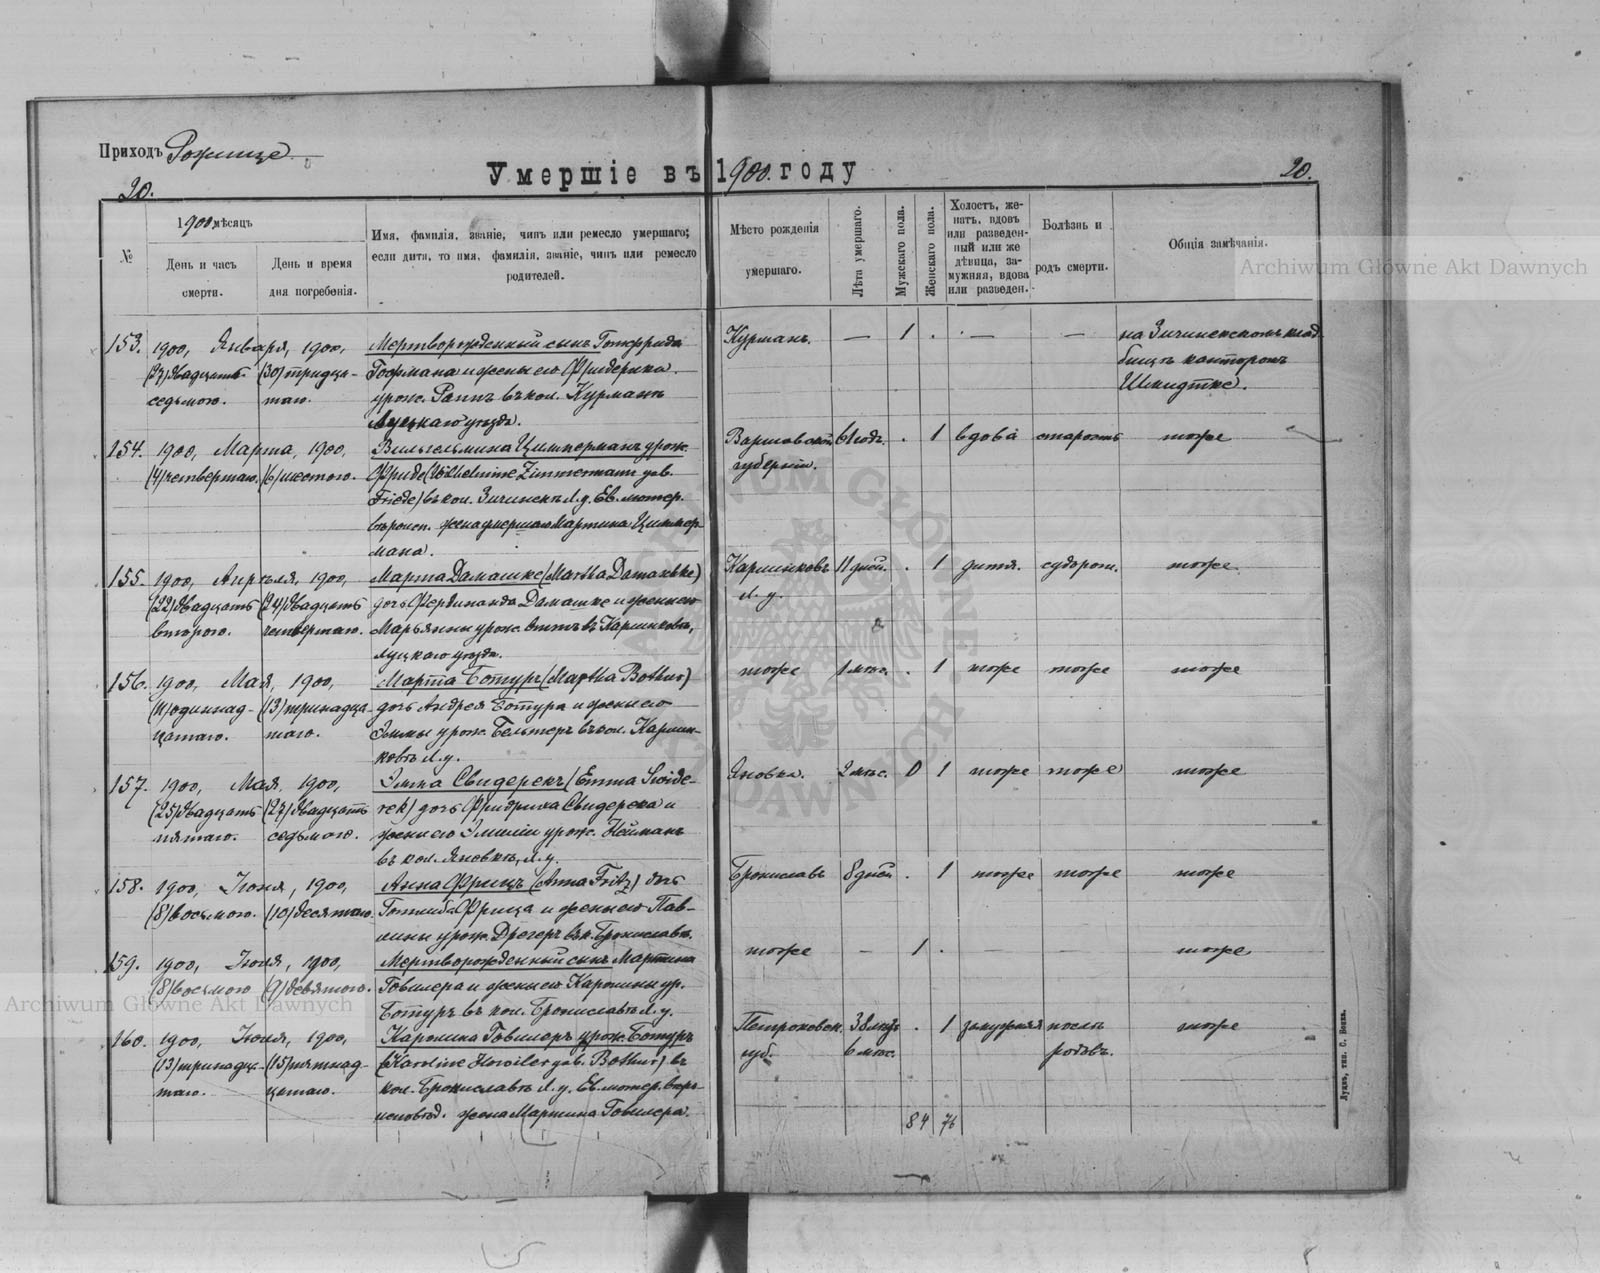 Приходъ Рожище
Умершіе въ 1900. году
20.
20.
№
1900 мѣсяцъ
День и часъ смерти.
День и время дня погребенія.
Имя, фамилія, званіе, чинъ или ремесло умершаго;
если дитя, то имя, фамилія, званіе, чинъ или ремесло
родителей.
Мѣсто рожденія
умершаго.
Лѣта умершаго.
Мужскаго пола.
Женскаго пола.
Холостъ, же-
натъ, вдовъ
или разведен-
ный или же
дѣвица, за-
мужняя, вдова
или разведен.
Болѣзнь и
родъ смерти.
Общія замѣчанія.
Archiwum Główne Akt Dawnych
153. 1900, Января, 1900, Мертворожденный сынъ Готфрида Курманъ. — 1 . — — на Зичинекскомъ клад
(27) двадцать (30) тридца- Гофмана и жены его Фридерика бищѣ канторомъ
седьмого. таго. урож. Рапп въ кол. Курманъ Шмидтке.
Луцкаго уѣзда.
154. 1900, Марта, 1900, Вильгельмина Циммерманъ урож. Варшавской 61 годъ. . 1 вдова старость тоже
(4) четвертаго. (6) шестого. Фриде (Wilhelmine Zimmermann geb. губерніи.
Friede) въ кол. Зичинекъ Л. у. Ев. лютер.
вѣроисп. жена умершаго Мартина Циммер
мана.
155. 1900, Апрѣля, 1900, Марта Дамашке (Martha Damaschke) Каршнковъ 11 дней. . 1 дитя. судорож. тоже
(22) двадцать (24) двадцать дочь Фердинанда Дамашке и жены его Л. у.
второго. четвертаго. Марьянны урож. Виттъ въ Каршнковѣ,
Луцкаго уѣзда.
156. 1900, Мая, 1900, Марта Ботуръ (Martha Bothur) тоже 1 мѣс. . 1 тоже тоже тоже
(11) одиннад- (13) тринадца- дочь Андрея Ботура и жены его
цатаго. таго. Эммы урож. Бельтеръ въ кол. Каршн-
ковѣ Л. у.
157. 1900, Мая, 1900, Эмма Свидерекъ (Emma Swide- Яновка. 2 мѣс. 0 1 тоже тоже тоже
(25) двадцать (27) двадцать rek) дочь Фридриха Свидерека и
пятаго. седьмого. жены его Эмиліи урож. Нейманъ
въ кол. Яновкѣ, Л. у.
158. 1900, Іюня, 1900, Анна Фрицъ (Anna Fritz) дочь Брониславъ 8 дней . 1 тоже тоже тоже
(8) восьмого. (10) десятаго. Готлиба Фрица и жены его Пав-
лины урож. Дрегеръ въ к. Брониславѣ.
159. 1900, Іюня, 1900, Мертворожденный сынъ Мартина тоже — 1 . — — тоже
(8) восьмого (9) девятого. Говилера и жены его Каролины ур.
Ботуръ въ кол. Брониславѣ Л. у.
160. 1900, Іюня, 1900, Каролина Говилеръ урож. Ботуръ Петроковск. 38 лѣтъ . 1 замужняя послѣ тоже
(13) тринадца- (15) пятнад- (Karoline Howiler geb. Bothur) въ губ. 6 мѣс. родовъ.
таго. цатаго. кол. Брониславѣ Л. у. Ев. лютер. вѣро-
исповѣд. жена Мартина Говилера.
84 76
Луцкъ, тип. С. Бонка.
Archiwum Główne Akt Dawnych
ARCHIWUM GŁÓWNE AKT DAWNYCH